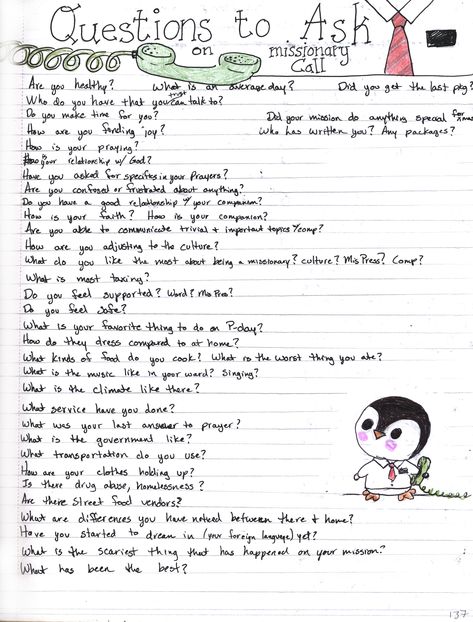 Questions to Ask
on missionary
call
Are you healthy? What is an average day? Did you get the last pkg?
Who do you have that you can trust talk to?
Do you make time for you? Did your mission do anything special for
How are you finding joy? Who has written you? Any packages?
How is your praying?
How your relationship w/ God?
Have you asked for specifics in your prayers?
Are you confused or frustrated about anything?
Do you have a good relationship w/ your companion?
How is your faith? How is your companion?
Are you able to communicate trivial + important topics w/ comp?
How are you adjusting to the culture?
What do you like the most about being a missionary? Culture? Mis Press? Comp?
What is most taxing?
Do you feel supported? Ward? Mis Pres?
Do you feel safe?
What is your favorite thing to do on P-day?
How do they dress compared to at home?
What kinds of food do you cook? What is the worst thing you ate?
What is the music like in your ward? Singing?
What is the climate like there?
What service have you done?
What was your last answer to prayer?
What is the government like?
What transportation do you use?
How are your clothes holding up?
Is there drug abuse, homelessness?
Are there street food vendors?
What are differences you have noticed between there + home?
Have you started to dream in (your foreign language) yet?
What is the scariest thing that has happened on your mission?
What has been the best?
137